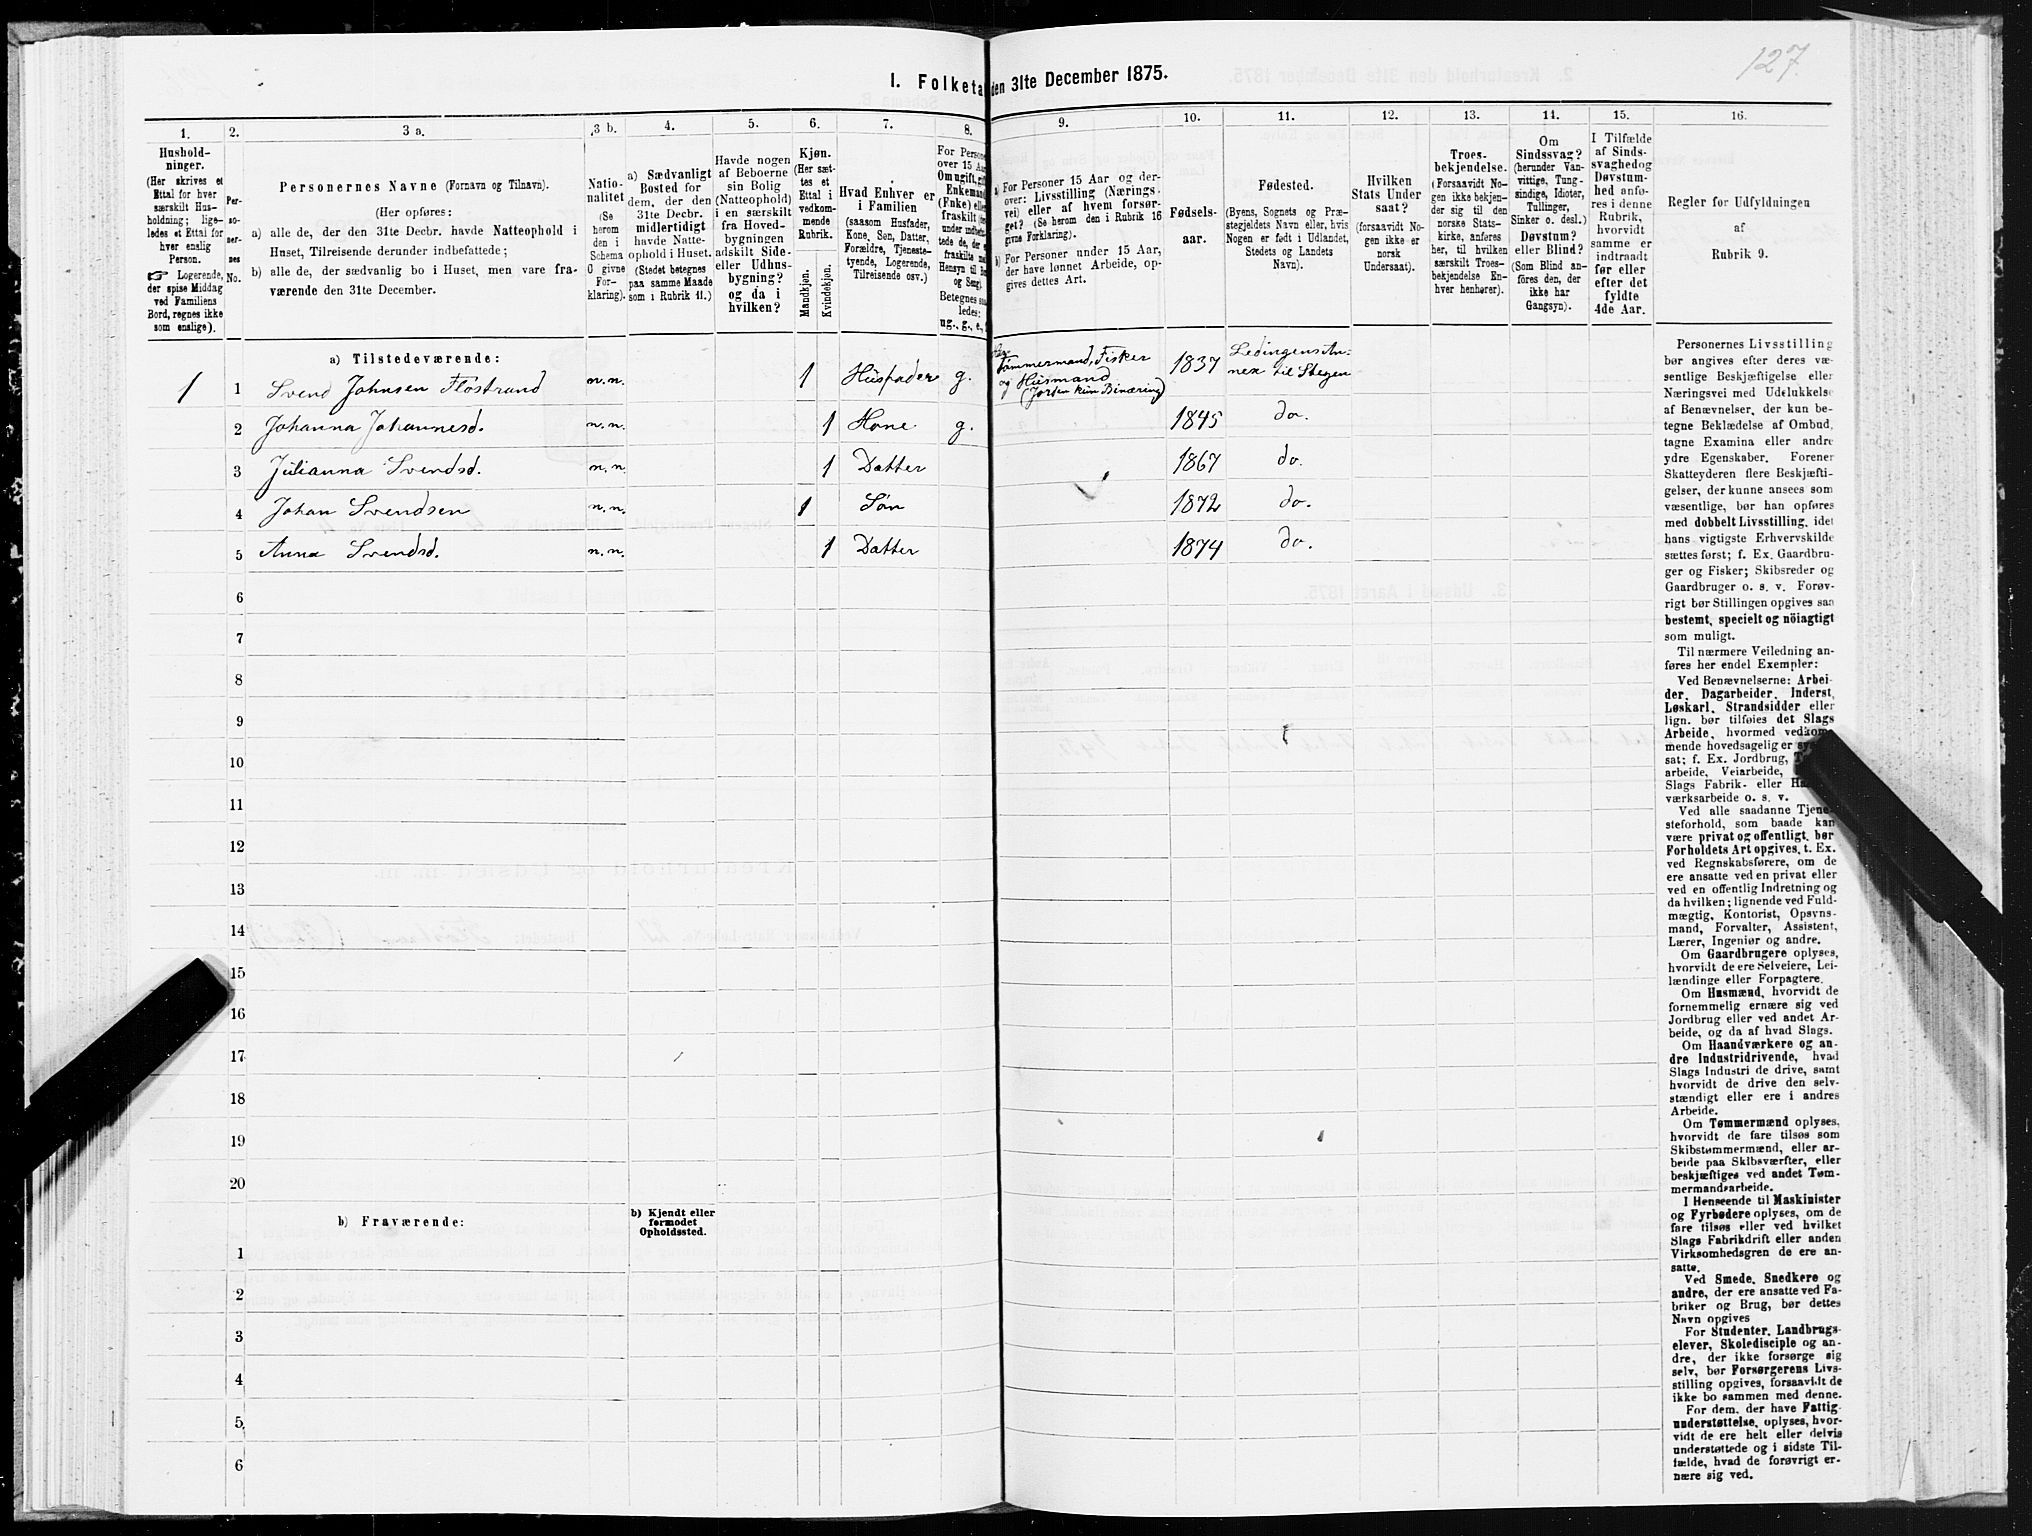 127.
I. Folketa den 31te December 1875.
1. 2. 3 a. 3 b. 4. 5. 6. 7. 8. 9. 10. 11. 12. 13. 14. 15. 16.
Hushold-
ninger.
(Her skrives et
Ettal for hver
særskilt Hus-
holdning; lige-
ledes et Ettal for
hver enslig
Person.
☞ Logerende,
der spise Middag
ved Familiens
Bord, regnes ikke
som enslige).
Per-
so-
ner-
nes
No.
Personernes Navne (Fornavn og Tilnavn).
(Her opføres:
a) alle de, der den 31te Decbr. havde Natteophold i
Huset, Tilreisende derunder indbefattede;
b) alle de, der sædvanlig bo i Huset, men vare fra-
værende den 31te December.
Natio-
nalitet
(Se
herom
den i
Schema
O givne
For-
klaring).
a) Sædvanligt
Bosted for
dem, der den
31te Decbr.
midlertidigt
havde Natte-
ophold i Huset.
(Stedet betegnes
paa samme Maade
som i Rubrik 11.)
Havde nogen
af Beboerne
sin Bolig
(Natteophold)
i en særskilt
fra Hoved-
bygningen
adskilt Side-
eller Udhus-
bygning?
og da i
hvilken?
Kjøn.
(Her sæt-
tes et
Ettal i
vedkom-
mende
Rubrik.
Mandkjøn.
Kvindekjøn.
Hvad Enhver er
i Familien
(saasom Husfader,
Kone, Søn, Datter,
Forældre, Tjeneste-
tyende, Logerende,
Tilreisende osv.)
For Person
over 15 Aa
Om ugift, gif
Enkeman
(Enke) elle
fraskilt
Betegnes saa
ledes:
ug., g., e.,
a) For Personer 15 Aar og der-
over: Livsstilling (Nærings-
vei) eller af hvem forsør-
get? (Se herom den i Rubrik 16
givne Forklaring).
b) For Personer under 15 Aar,
der have lønnet Arbeide, op-
gives dettes Art.
Fødsels-
aar.
Fødested.
(Byens, Sognets og Præ-
stegjeldets Navn eller, hvis
Nogen er født i Udlandet,
Stedets og Landets
Navn).
Hvilken
Stats Under
saat?
(forsaavidt No-
gen ikke er
norsk
Undersaat).
Troes-
bekjendelse.
(Forsaavidt No-
gen ikke bekjen-
der sig til den
norske Stats-
kirke, anføres
her, til hvilken
særskilt Troes-
bekjendelse En-
hver henhører).
Om
Sindssvag?
(herunder Van-
vittige, Tung-
sindige, Idioter,
Tullinger,
Sinker o. desl.)
Døvstum?
eller Blind?
(Som Blind an-
föres den, der
ikke har
Gangsyn).
I Tilfælde
af Sinds-
svaghed og
Døvstum-
hed anfø-
res i denne
Rubrik,
hvorvidt
samme er
indtraadt
før eller
efter det
fyldte
4de Aar.
Regler for Udfyldningen
af
Rubrik 9.
a) Tilstedeværende:
1 1 Svend Johnsen Flostrand n.n. 1 Husfader g. Tømmermand, Fisker
og Husmand
(Jorden kun Binæring) 1837 Ledingens An-
nex til Stegen
2 Johanna Johannesd. n.n. 1 Kone g. 1845 do.
3 Julianna Svendsd. n.n. 1 Datter 1867 do.
4 Johan Svendsen n.n. 1 Søn 1872 do.
5 Anna Svendsd. n.n. 1 Datter 1874 do.
6
7
8
9
10
11
12
13
14
15
16
17
18
19
20
b) Fraværende:
b) Kjendt eller
formodet
Opholdssted.
1
2
3
4
5
6
Personernes Livsstilling
bør angives efter deres væ-
sentlige Beskjæftigelse eller
Næringsvei med Udelukkelse
af Benævnelser, der kun be-
tegne Beklædelse af Ombud,
tagne Examina eller andre
ydre Egenskaber. Forener
Skatteyderen flere Beskjæfti-
gelser, der kunne ansees som
væsentlige, bør han opføres
med dobbelt Livsstilling, idet
hans vigtigste Erhvervskilde
sættes først; f. Ex. Gaardbru-
ger og Fisker; Skibsreder og
Gaardbruger o. s. v. Forøv-
rigt bør Stillingen opgives saa
bestemt, specielt og nöiagtigt
som muligt.
Til nærmere Veiledning an-
føres her endel Exempler:
Ved Benævnelserne: Arbei-
der, Dagarbeider, Inderst,
Løskarl, Strandsidder eller
lign. bør tilføies det Slags
Arbeide, hvormed vedkom-
mende hovedsagelig er
sat; f. Ex. Jordbrug,
arbeide, Veiarbeide,
Slags Fabrik- eller
værksarbeide o. s. v.
Ved alle saadanne Tjene-
steforhold, som baade kan
være privat og offentligt, bør
Forholdets Art opgives, t. Ex.
ved Regnskabsførere, om de
ere ansatte ved en privat eller
ved en offentlig Indretning og
da hvilken; lignende ved Fuld-
mægtig, Kontorist, Opsyns-
mand, Forvalter, Assistent,
Lærer, Ingeniør og andre.
Om Gaardbrugere oplyses,
hvorvidt de ere Selveiere, Lei-
lændinge eller Forpagtere.
Om Husmænd, hvorvidt de
fornemmelig ernære sig ved
Jordbrug eller ved andet Ar-
beide, og da af hvad Slags.
Om Haandværkere og an-
dre Industridrivende, hvad
Slags Industri de drive, samt
hvorvidt de drive den selv-
stændigt eller ere i andres
Arbeide.
Om Tømmermænd oplyses,
hvorvidt de fare tilsøs som
Skibstømmermænd, eller ar-
beide paa Skibsværfter, eller
beskjæftiges ved andet Tøm-
mermandsarbeide.
I Henseende til Maskinister
og Fyrbødere oplyses, om de
fare tilsøs eller ved hvilket
Slags Fabrikdrift eller anden
Virksomhedsgren de ere an-
satte.
Ved Smede, Snedkere og
andre, der ere ansatte ved Fa-
briker og Brug, bør dettes
Navn opgives
For Studenter, Landbrugs-
elever, Skoledisciple og an-
dre, der ikke forsørge sig
selv, bør Forsørgerens Livs-
stilling opgives, forsaavidt de
ikke bo sammen med denne.
For dem, der have Fattig-
understøttelse, oplyses, hvor-
vidt de ere helt eller delvis
understøttede og i sidste Til-
fælde, hvad de forøvrigt er-
nære sig ved.